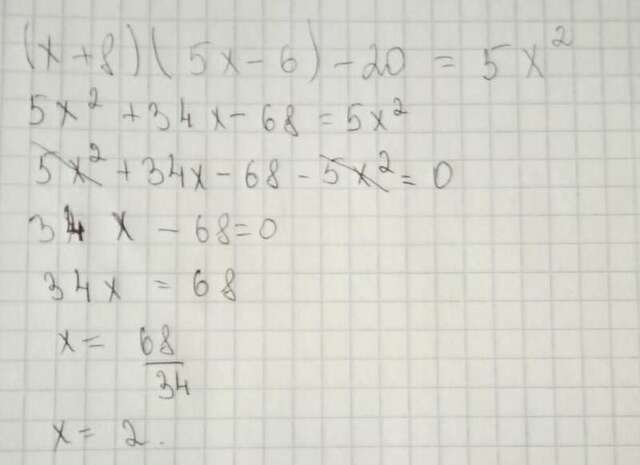 (x+8)(5x-6)-20 = 5x²
5x²+34x-68=5x²
5x²+34x-68-5x²=0
34x-68=0
34x=68
x=68/34
x=2.